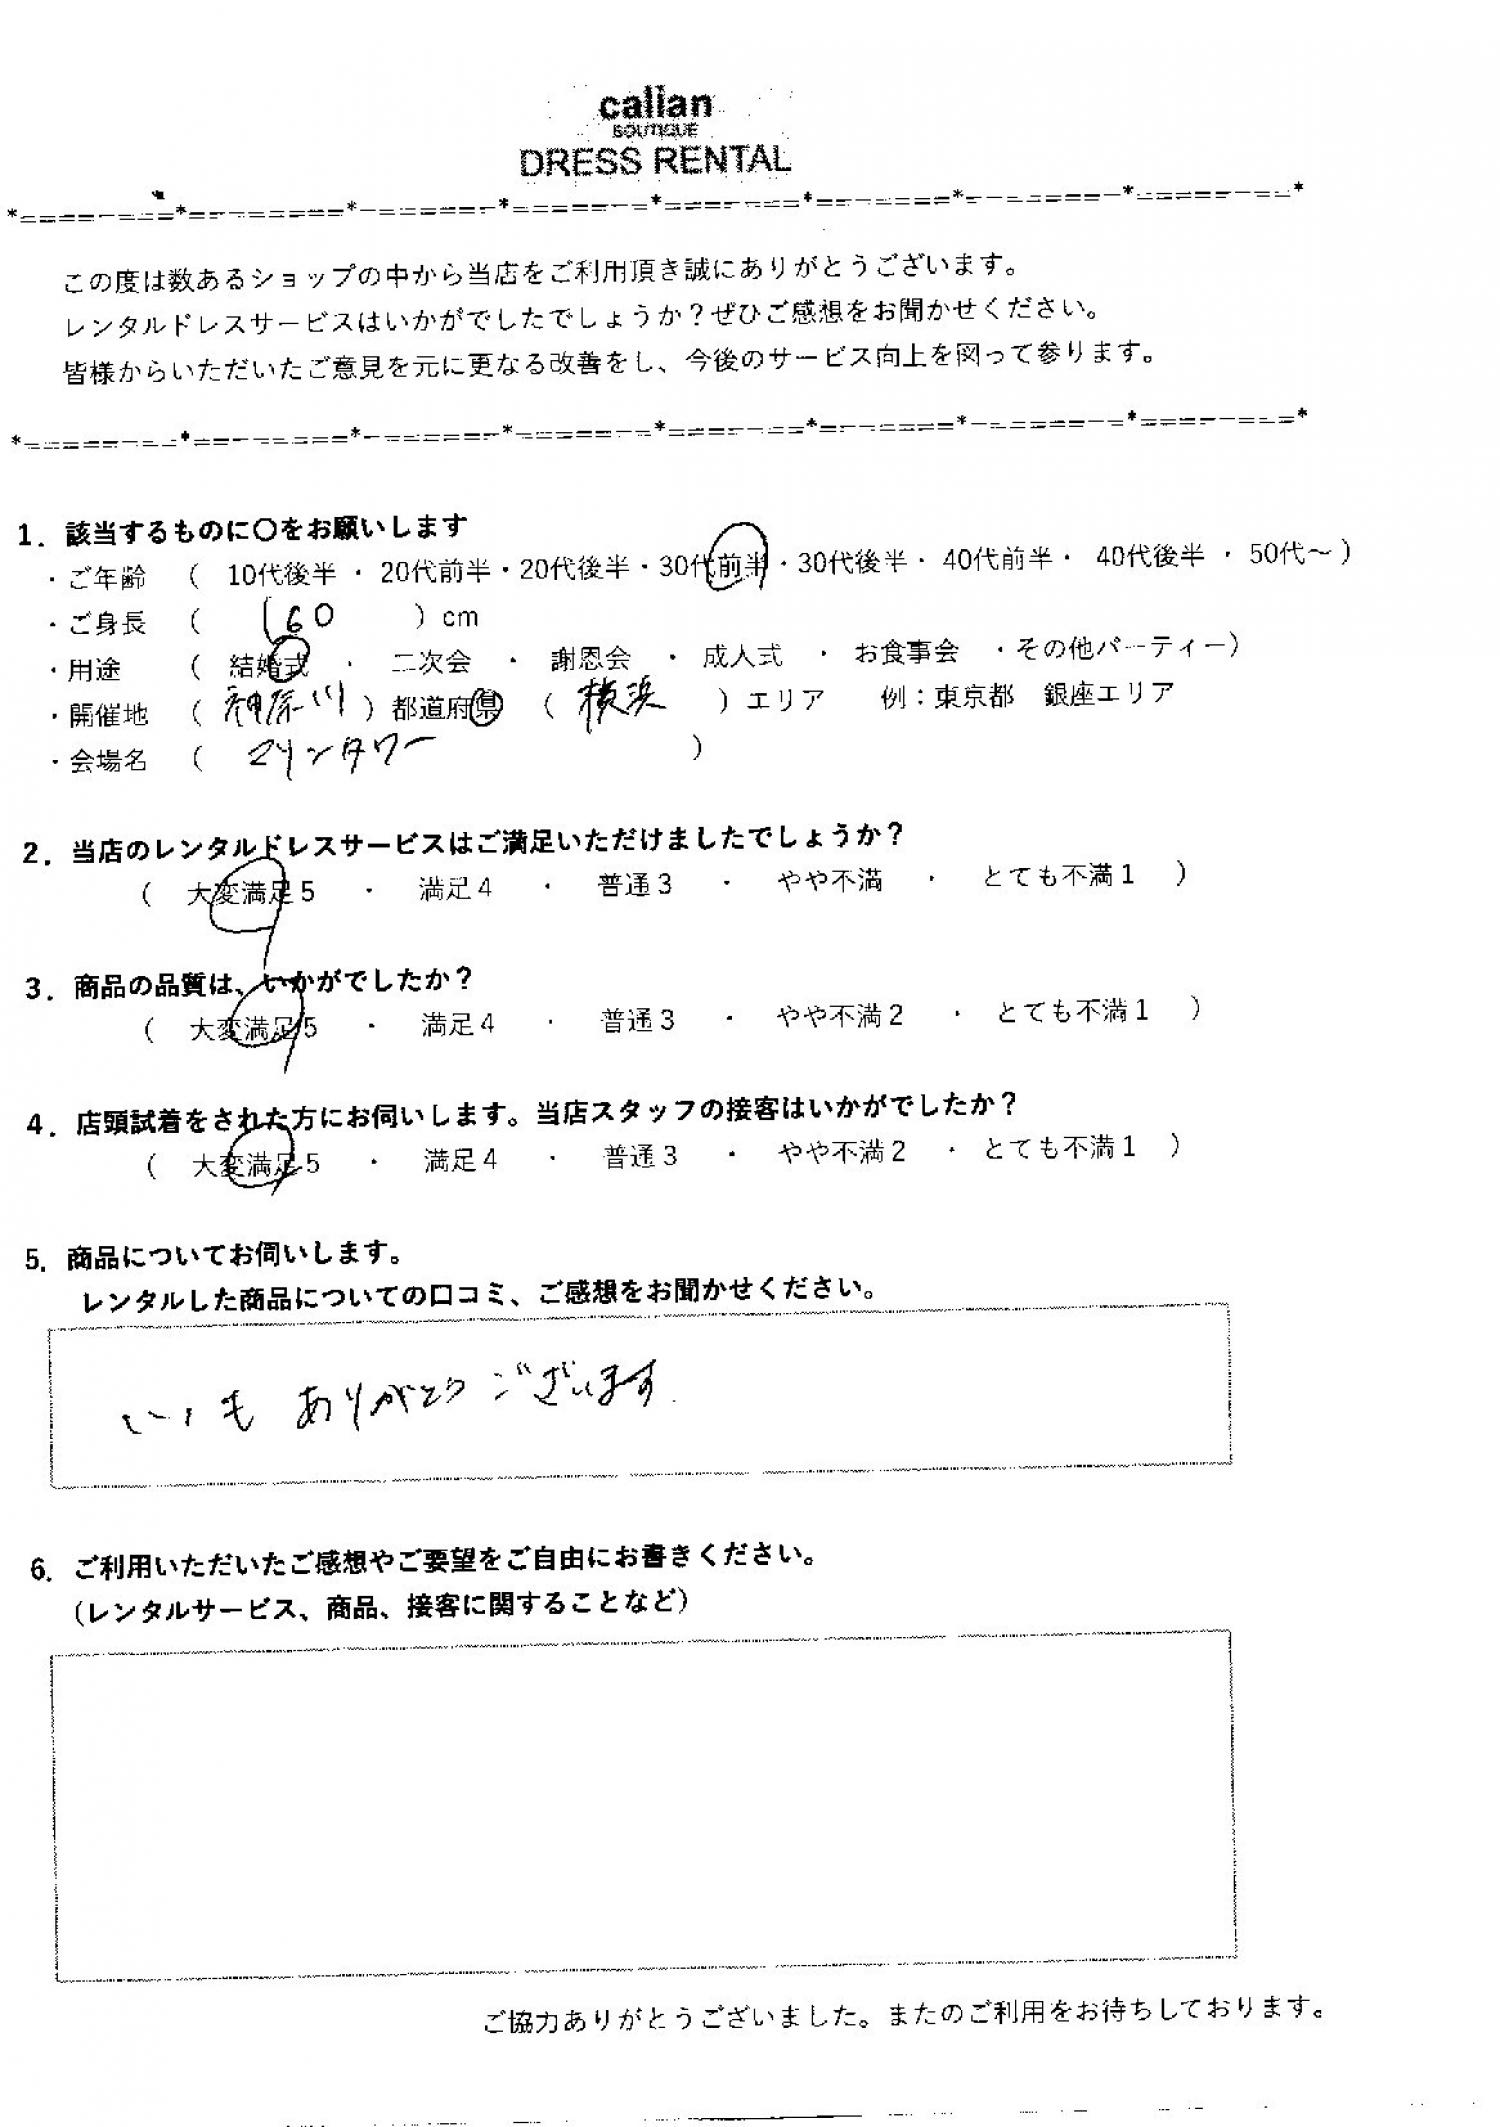 calian
BOUTIQUE
DRESS RENTAL
この度は数あるショップの中から当店をご利用頂き誠にありがとうございます。
レンタルドレスサービスはいかがでしたでしょうか？ぜひご感想をお聞かせください。
皆様からいただいたご意見を元に更なる改善をし、今後のサービス向上を図って参ります。
1．該当するものに〇をお願いします
・ご年齢 （ 10代後半 ・ 20代前半・20代後半・30代前半・30代後半・ 40代前半・ 40代後半 ・ 50代～）
・ご身長 （ 160 ）cm
・用途 （ 結婚式 ・ 二次会 ・ 謝恩会 ・ 成人式 ・ お食事会 ・その他パーティー）
・開催地 （ 神奈川 ）都道府県 （ 横浜 ）エリア 例：東京都 銀座エリア
・会場名 （ マリンタワー ）
2．当店のレンタルドレスサービスはご満足いただけましたでしょうか？
（ 大変満足5 ・ 満足4 ・ 普通3 ・ やや不満 ・ とても不満1 ）
3．商品の品質は、いかがでしたか？
（ 大変満足5 ・ 満足4 ・ 普通3 ・ やや不満2 ・ とても不満1 ）
4．店頭試着をされた方にお伺いします。当店スタッフの接客はいかがでしたか？
（ 大変満足5 ・ 満足4 ・ 普通3 ・ やや不満2 ・ とても不満1 ）
5．商品についてお伺いします。
レンタルした商品についての口コミ、ご感想をお聞かせください。
いつも ありがとうございます
6．ご利用いただいたご感想やご要望をご自由にお書きください。
（レンタルサービス、商品、接客に関することなど）
ご協力ありがとうございました。またのご利用をお待ちしております。